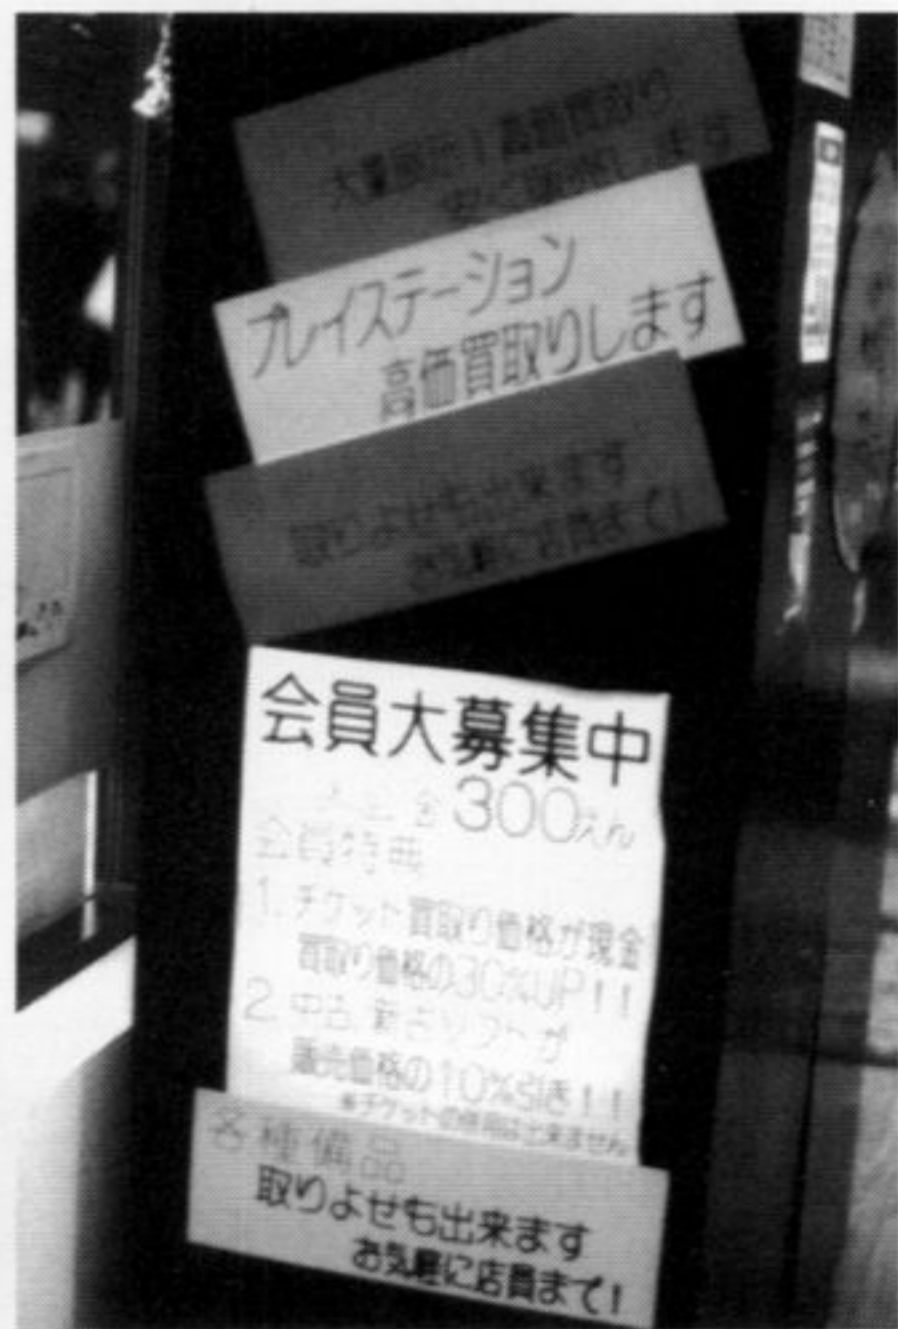 高価買取り
プレイステーション
高価買取りします
取りよせも出来ます
お気軽に店員まで!
会員大募集中
入会金300えん
会員特典
1. チケット買取り価格が現金
買取り価格の30%UP!!
2. 中古、新古ソフトが
販売価格の10%引き!!
※チケットの併用は出来ません
各種備品
取りよせも出来ます
お気軽に店員まで!